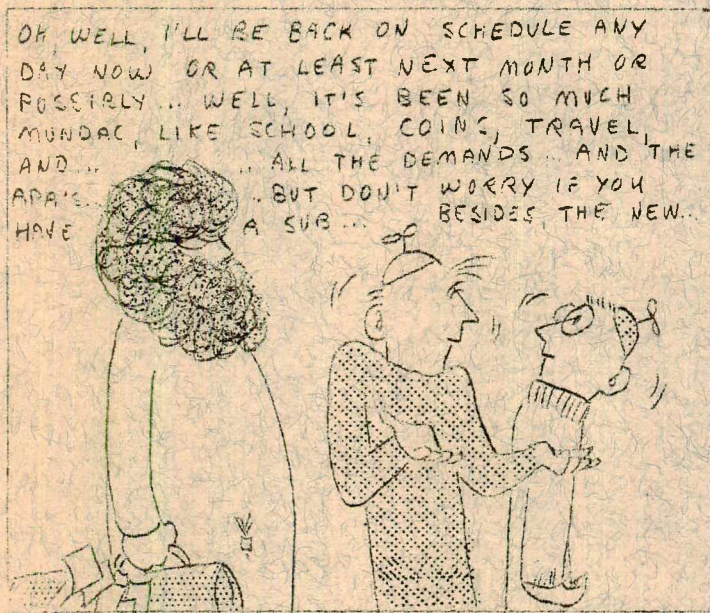 OH, WELL, I'LL BE BACK ON SCHEDULE ANY
DAY NOW OR AT LEAST NEXT MONTH OR
POSSIBLY... WELL, IT'S BEEN SO MUCH
MUNDAC, LIKE SCHOOL, COINS, TRAVEL,
AND... ... ALL THE DEMANDS... AND THE
APA'S... ... BUT DON'T WORRY IF YOU
HAVE A SUB... BESIDES, THE NEW...